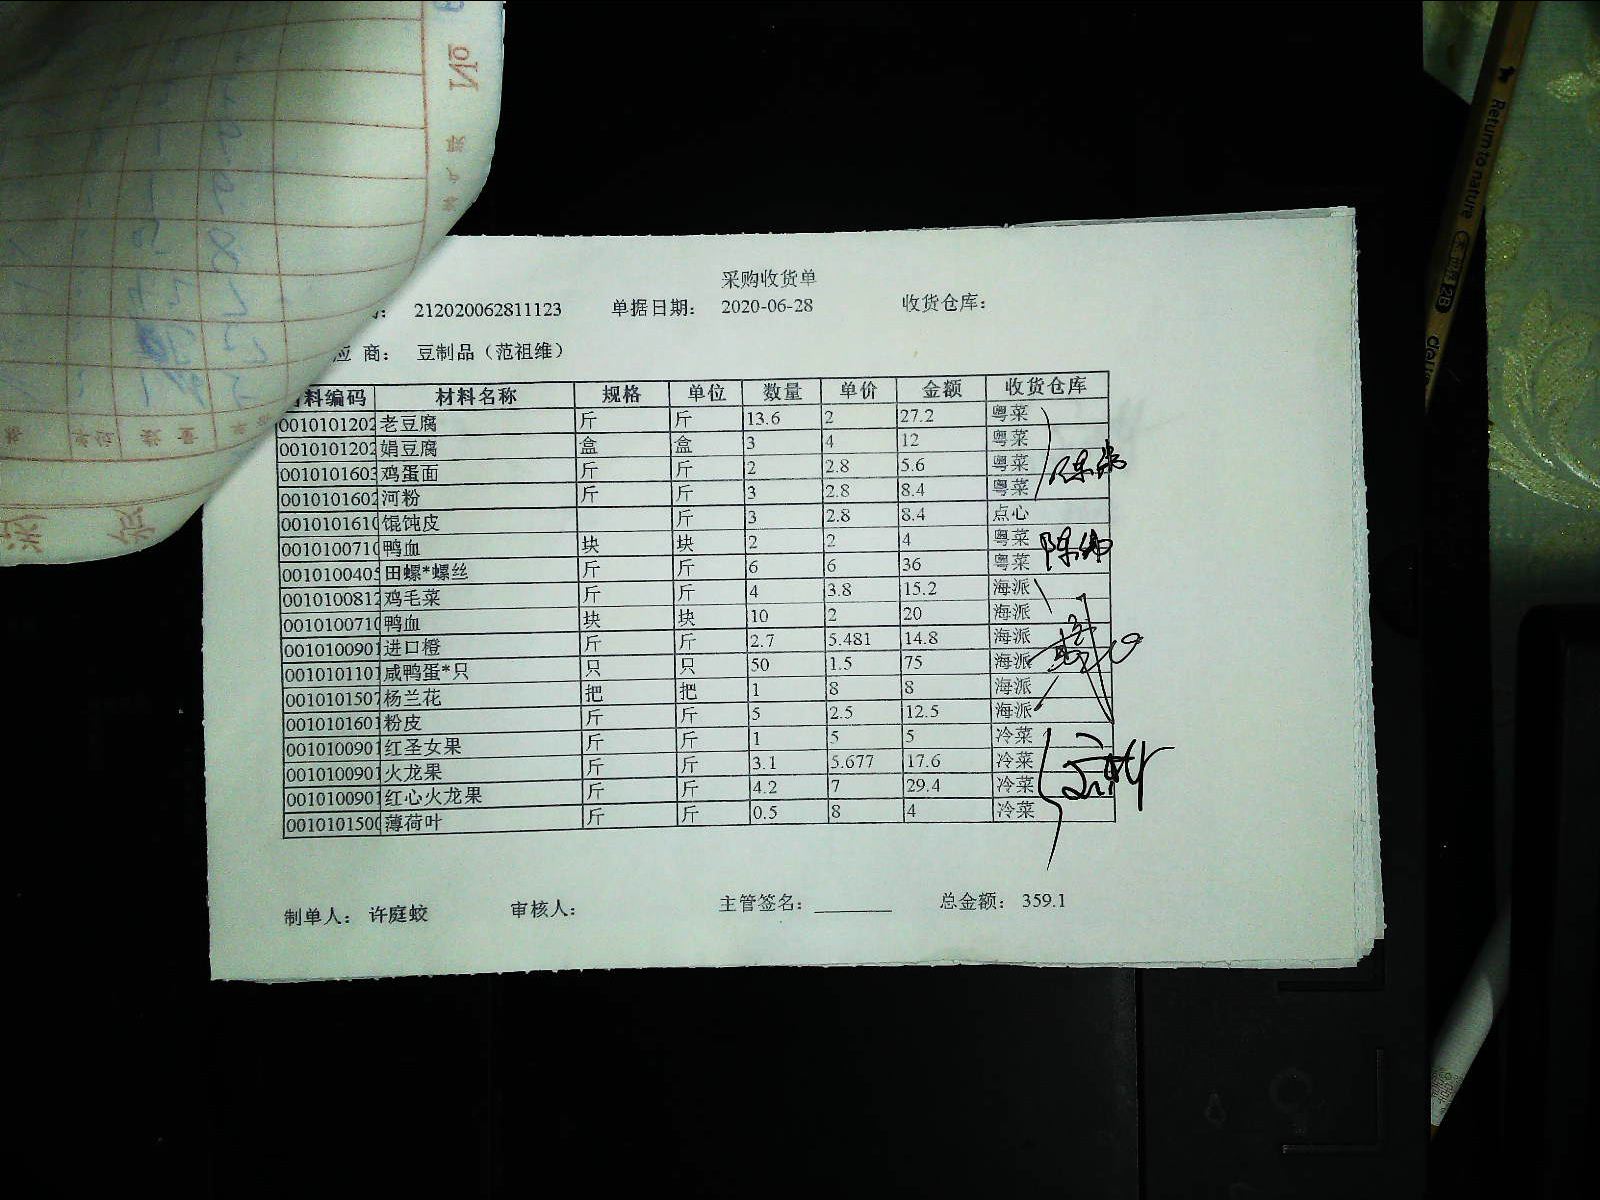 采购收货单
212020062811123 单据日期: 2020-06-28 收货仓库:
应 商: 豆制品（范祖维）
料编码 材料名称 规格 单位 数量 单价 金额 收货仓库
0010101202 老豆腐 斤 斤 13.6 2 27.2 粤菜
0010101202 娟豆腐 盒 盒 3 4 12 粤菜
0010101603 鸡蛋面 斤 斤 2 2.8 5.6 粤菜
0010101602 河粉 斤 斤 3 2.8 8.4 粤菜
0010101610 馄饨皮 斤 3 2.8 8.4 点心
0010100710 鸭血 块 块 2 2 4 粤菜
0010100405 田螺*螺丝 斤 斤 6 6 36 粤菜
0010100812 鸡毛菜 斤 斤 4 3.8 15.2 海派
0010100710 鸭血 块 块 10 2 20 海派
0010100901 进口橙 斤 斤 2.7 5.481 14.8 海派
0010101101 咸鸭蛋*只 只 只 50 1.5 75 海派
0010101507 杨兰花 把 把 1 8 8 海派
0010101601 粉皮 斤 斤 5 2.5 12.5 海派
0010100901 红圣女果 斤 斤 1 5 5 冷菜
0010100901 火龙果 斤 斤 3.1 5.677 17.6 冷菜
0010100901 红心火龙果 斤 斤 4.2 7 29.4 冷菜
0010101500 薄荷叶 斤 斤 0.5 8 4 冷菜
制单人: 许庭蛟 审核人: 主管签名: 总金额: 359.1
Return to nature
2B
№